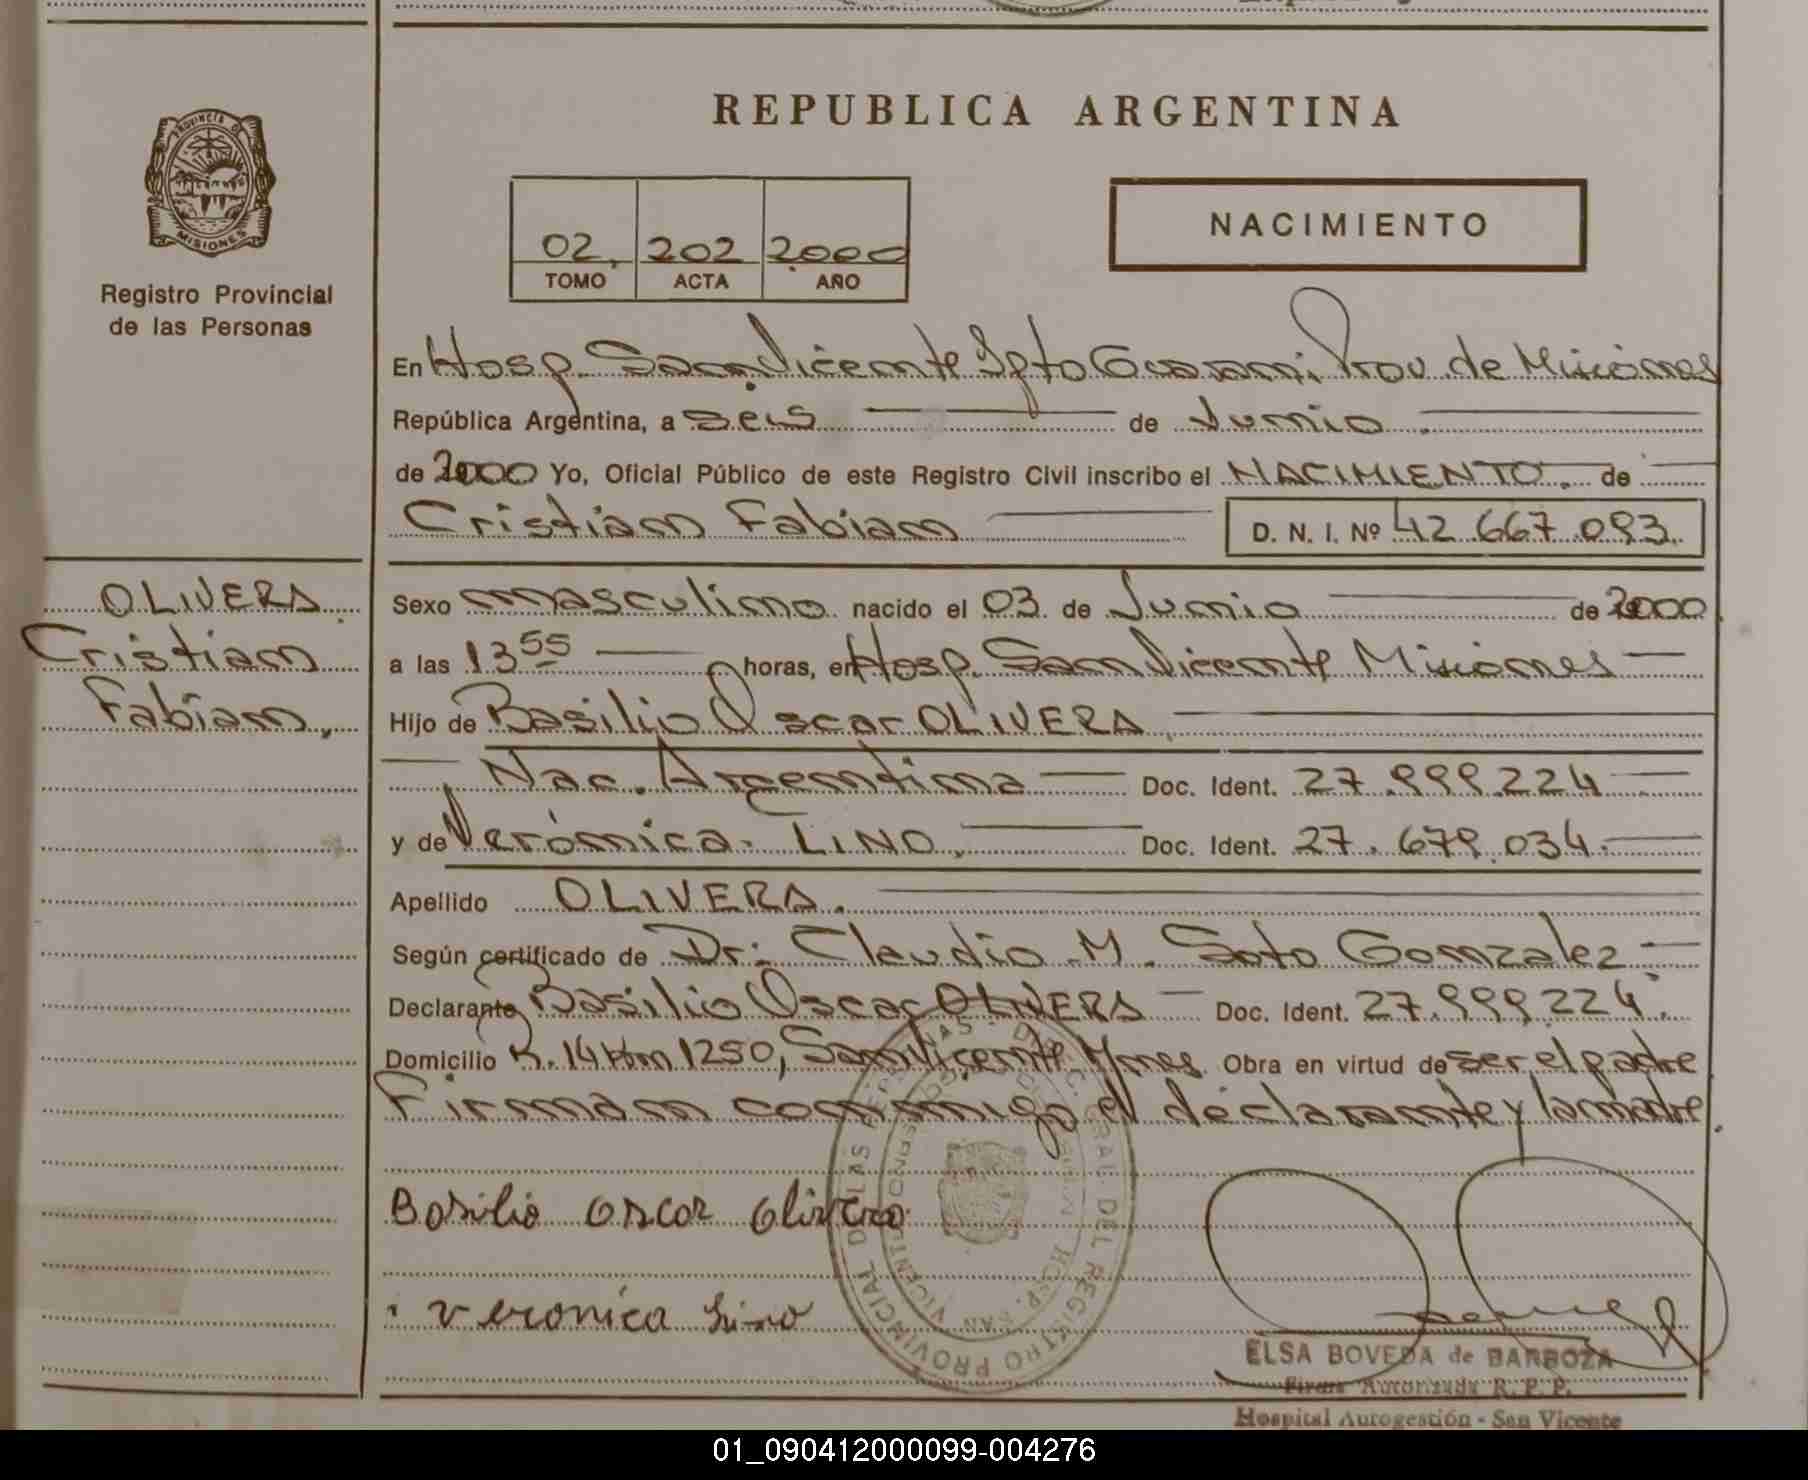 REPUBLICA ARGENTINA
PROVINCIA DE
MISIONES
Registro Provincial
de las Personas
02 202 2000
TOMO ACTA AÑO
NACIMIENTO
En Hosp. San Vicente Dpto Guarani, Prov. de Misiones
República Argentina, a seis de Junio
de 2000 Yo, Oficial Público de este Registro Civil inscribo el NACIMIENTO. de
Cristian Fabian D. N. I. Nº 42.667.093.
OLIVERA
Cristian
Fabian,
Sexo masculino nacido el 03 de Junio de 2000
a las 13 55 horas, en Hosp. San Vicente Misiones
Hijo de Basilio Oscar OLIVERA
Nac. Argentina Doc. Ident. 27.999.224
y de Verónica LINO, Doc. Ident. 27.679.034.
Apellido OLIVERA.
Según certificado de Dr. Claudio M. Soto Gonzalez.
Declarante Basilio Oscar OLIVERA Doc. Ident. 27.999.224.
Domicilio R. 14 Km 1250, San Vicente Mnes. Obra en virtud de ser el padre
Firman conmigo el declarante y la madre.
Basilio Oscar Olivera
Veronica Lino
DIREC. GRAL DEL REGISTRO PROVINCIAL DE LAS PERSONAS
HOSP. SAN VICENTE
ELSA BOVEDA de BARBOZA
Firma Autorizada R. P. P.
Hospital Autogestión - San Vicente
01_090412000099-004276